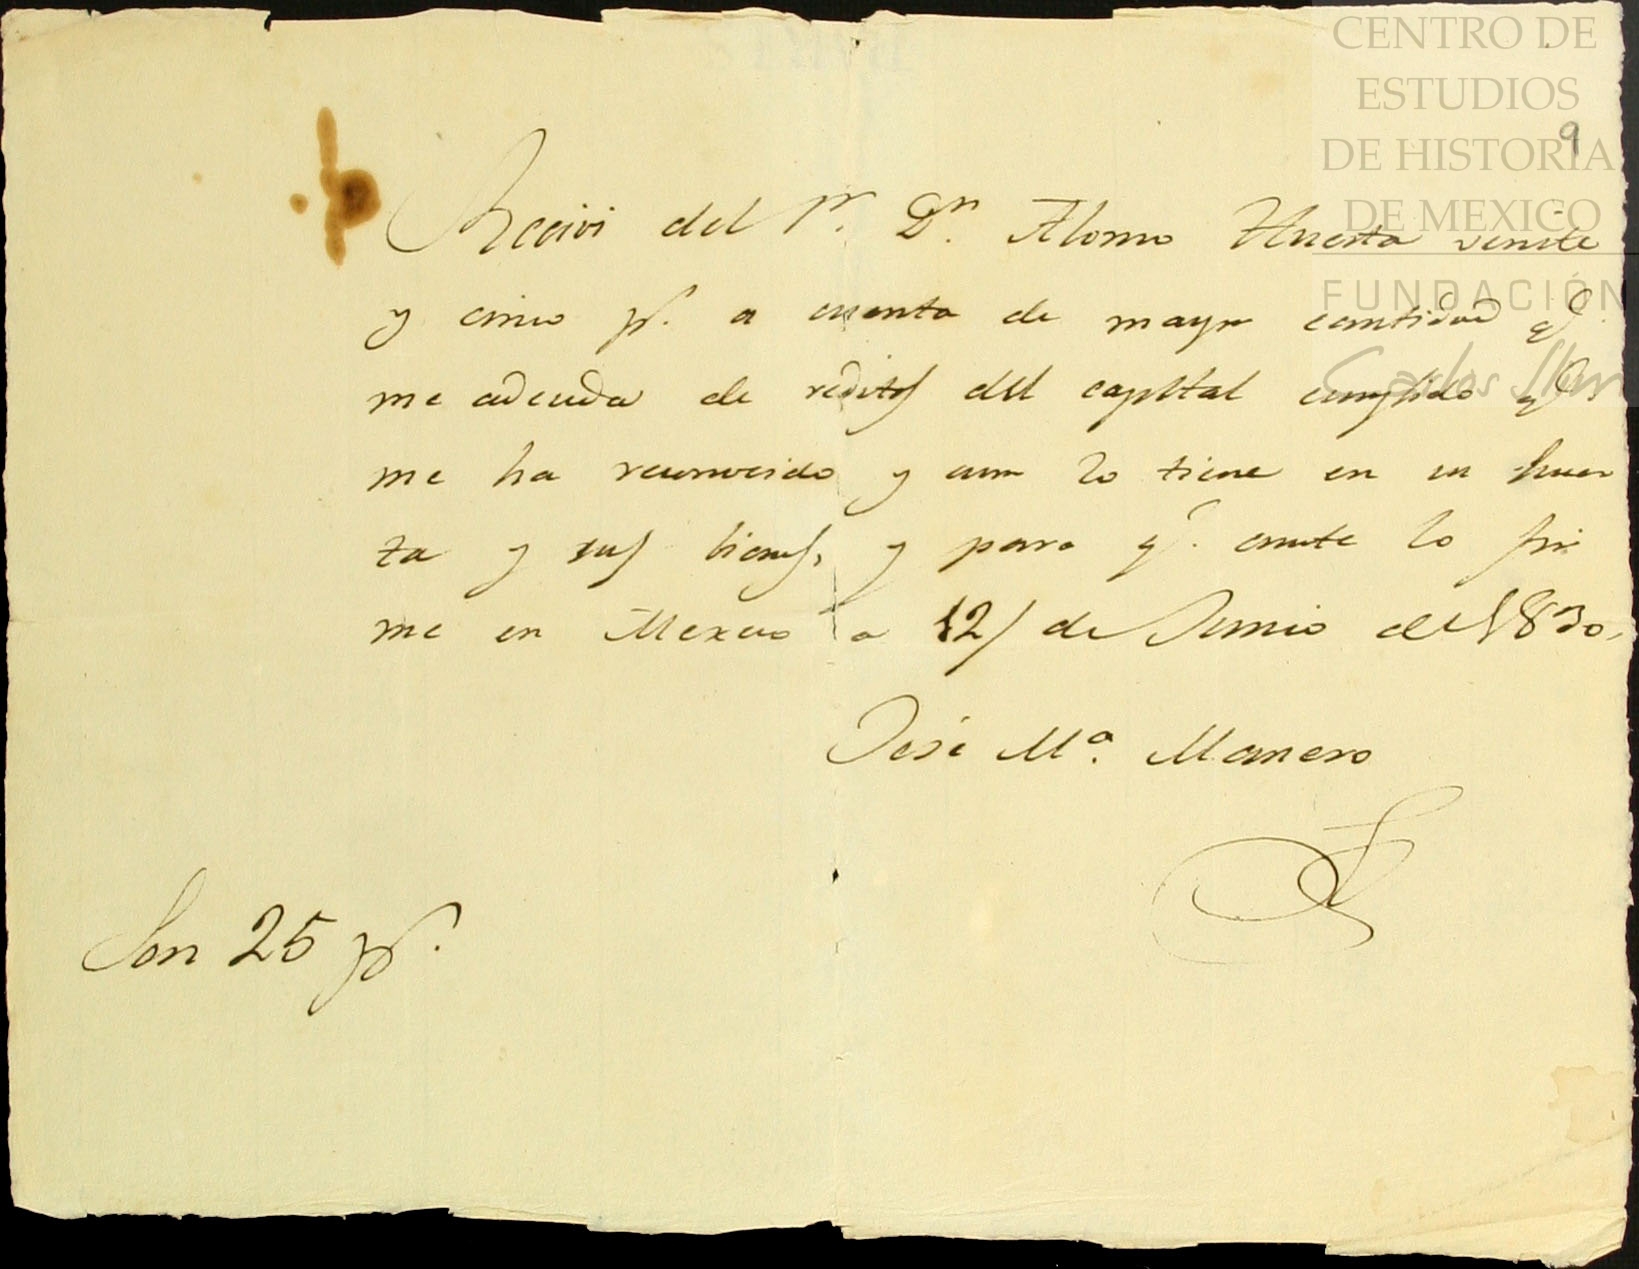 CENTRO DE
ESTUDIOS
DE HISTORIA
DE MEXICO
FUNDACIÓN
Carlos Slim
9
Recivi del Sr. Dn. Alonso Huerta veinte
y cinco ps. a cuenta de mayor cantidad q.
me adeuda de reditos del capital cumplido q.
me ha reconocido y aun lo tiene en su huer
ta y sus bienes, y para q. conste lo fir
me en Mexico a 12 de Junio de 1830.
José Ma. Manero
Son 25 ps.